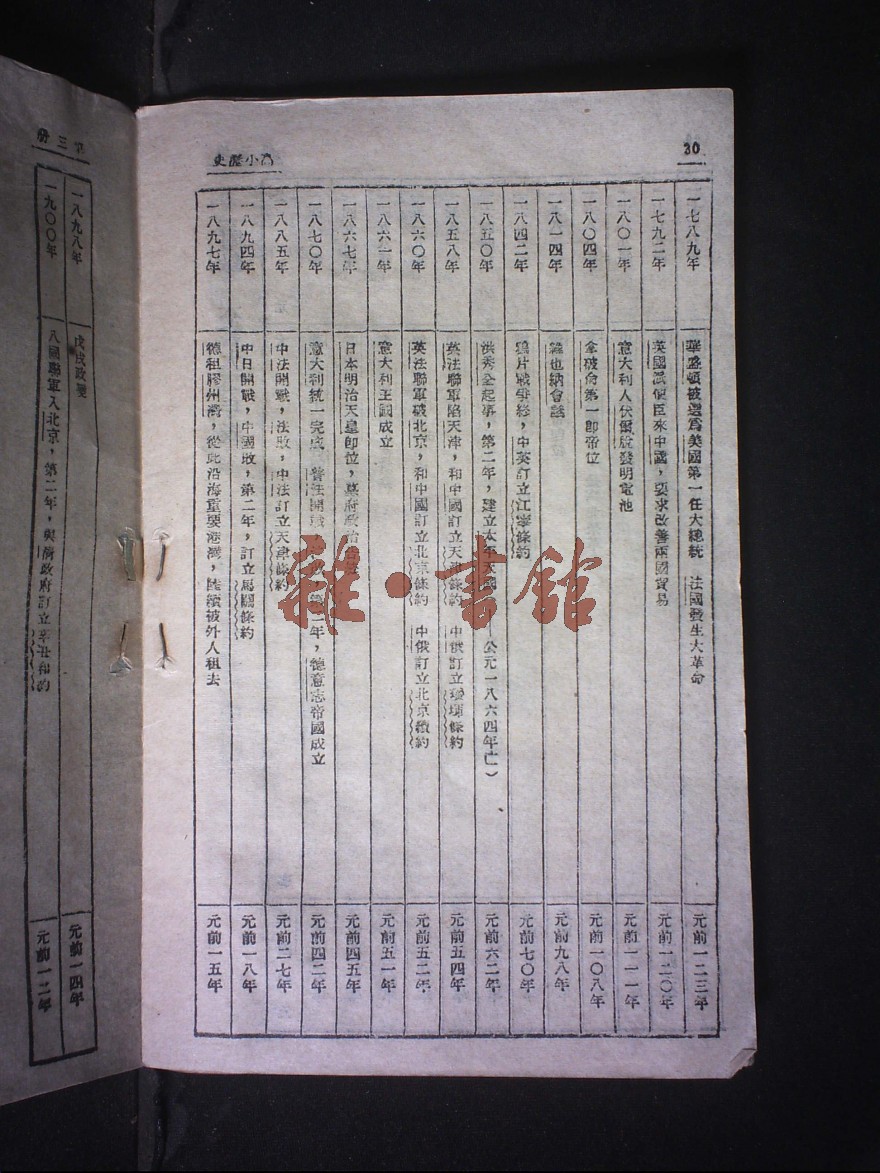 30
高小歷史
一七八九年 華盛頓被選爲美國第一任大總統 法國發生大革命 元前一二三年
一七九二年 英國派使臣來中國,要求改善兩國貿易 元前一二〇年
一八〇一年 意大利人伏爾脫發明電池 元前一一一年
一八〇四年 拿破侖第一卽帝位 元前一〇八年
一八一四年 維也納會議 元前九八年
一八四二年 鴉片戰爭終,中英訂立江寧條約 元前七〇年
一八五〇年 洪秀全起事,第二年,建立太平天國 公元一八六四年亡) 元前六二年
一八五八年 英法聯軍陷天津,和中國訂立天津條約 中俄訂立璦琿條約 元前五四年
一八六〇年 英法聯軍破北京,和中國訂立北京條約 中俄訂立北京續約 元前五二年
一八六一年 意大利王國成立 元前五一年
一八六七年 日本明治天皇卽位,幕府政治 元前四五年
一八七〇年 意大利統一完成 普法開戰 第二年,德意志帝國成立 元前四二年
一八八五年 中法開戰,法敗,中法訂立天津條約 元前二七年
一八九四年 中日開戰,中國敗,第二年,訂立馬關條約 元前一八年
一八九七年 德租膠州灣,從此沿海重要港灣,陸續被外人租去 元前一五年
雜·書館
第三册
一八九八年 戊戌政變 元前一四年
一九〇〇年 八國聯軍入北京,第二年,與淸政府訂立辛丑和約 元前一二年